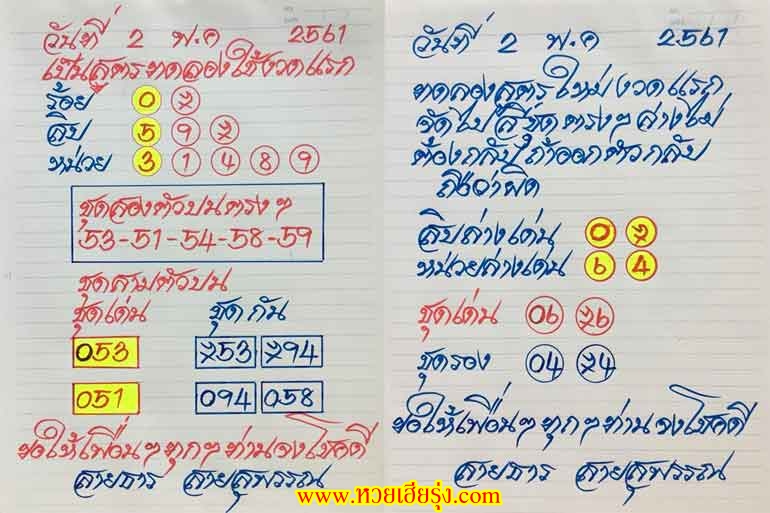 วันที่ 2 พ.ค 2561
เป็นสูตรทดลองใช้งวดแรก
ร้อย 0 2
สิบ 5 9 2
หน่วย 3 1 4 8 9
ชุดสองตัวบนตรงๆ
53-51-54-58-59
ชุดสามตัวบน
ชุดเด่น ชุดกัน
053 253 294
051 094 058
ขอให้เพื่อนๆทุกๆท่านจงโชคดี
สายธาร สายสุพรรณ
วันที่ 2 พ.ค 2561
ทดลองสูตรใหม่งวดแรก
จัดไป สี่ชุดตรงๆล่างไม่
ต้องกลับถ้าออกตัวกลับ
ถือว่าผิด
สิบล่างเด่น 0 2
หน่วยล่างเด่น 6 4
ชุดเด่น 06 26
ชุดรอง 04 24
ขอให้เพื่อนๆทุกๆท่านจงโชคดี
สายธาร สายสุพรรณ
www.หวยเฮียรุ่ง.com